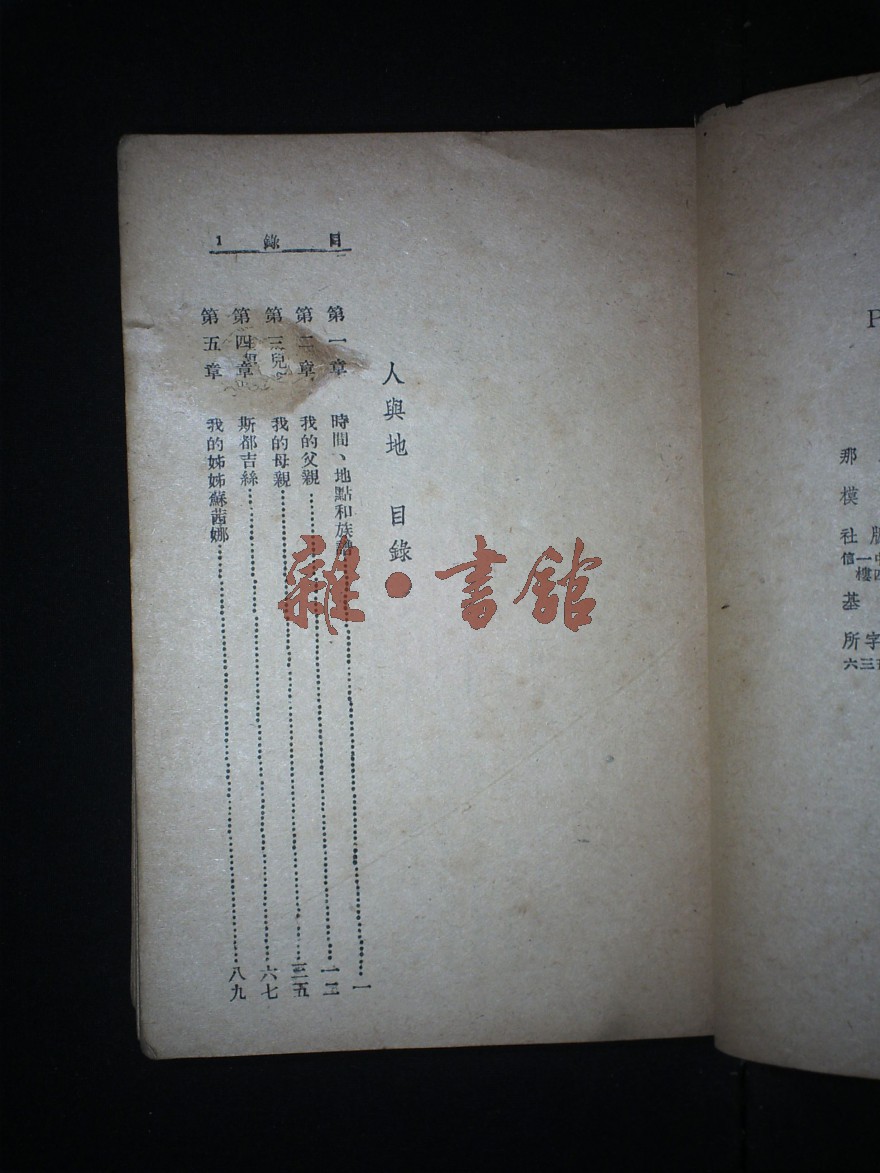 目 錄 1
人與地 目錄
第一章 時間、地點和族譜 一
第二章 我的父親 一二
第三 我的母親 三五
第四章 斯都吉絲 六七
第五章 我的姊姊蘇茜娜 八九
雜·書館
P
那
模
社
信一
樓四
基
所字
六三